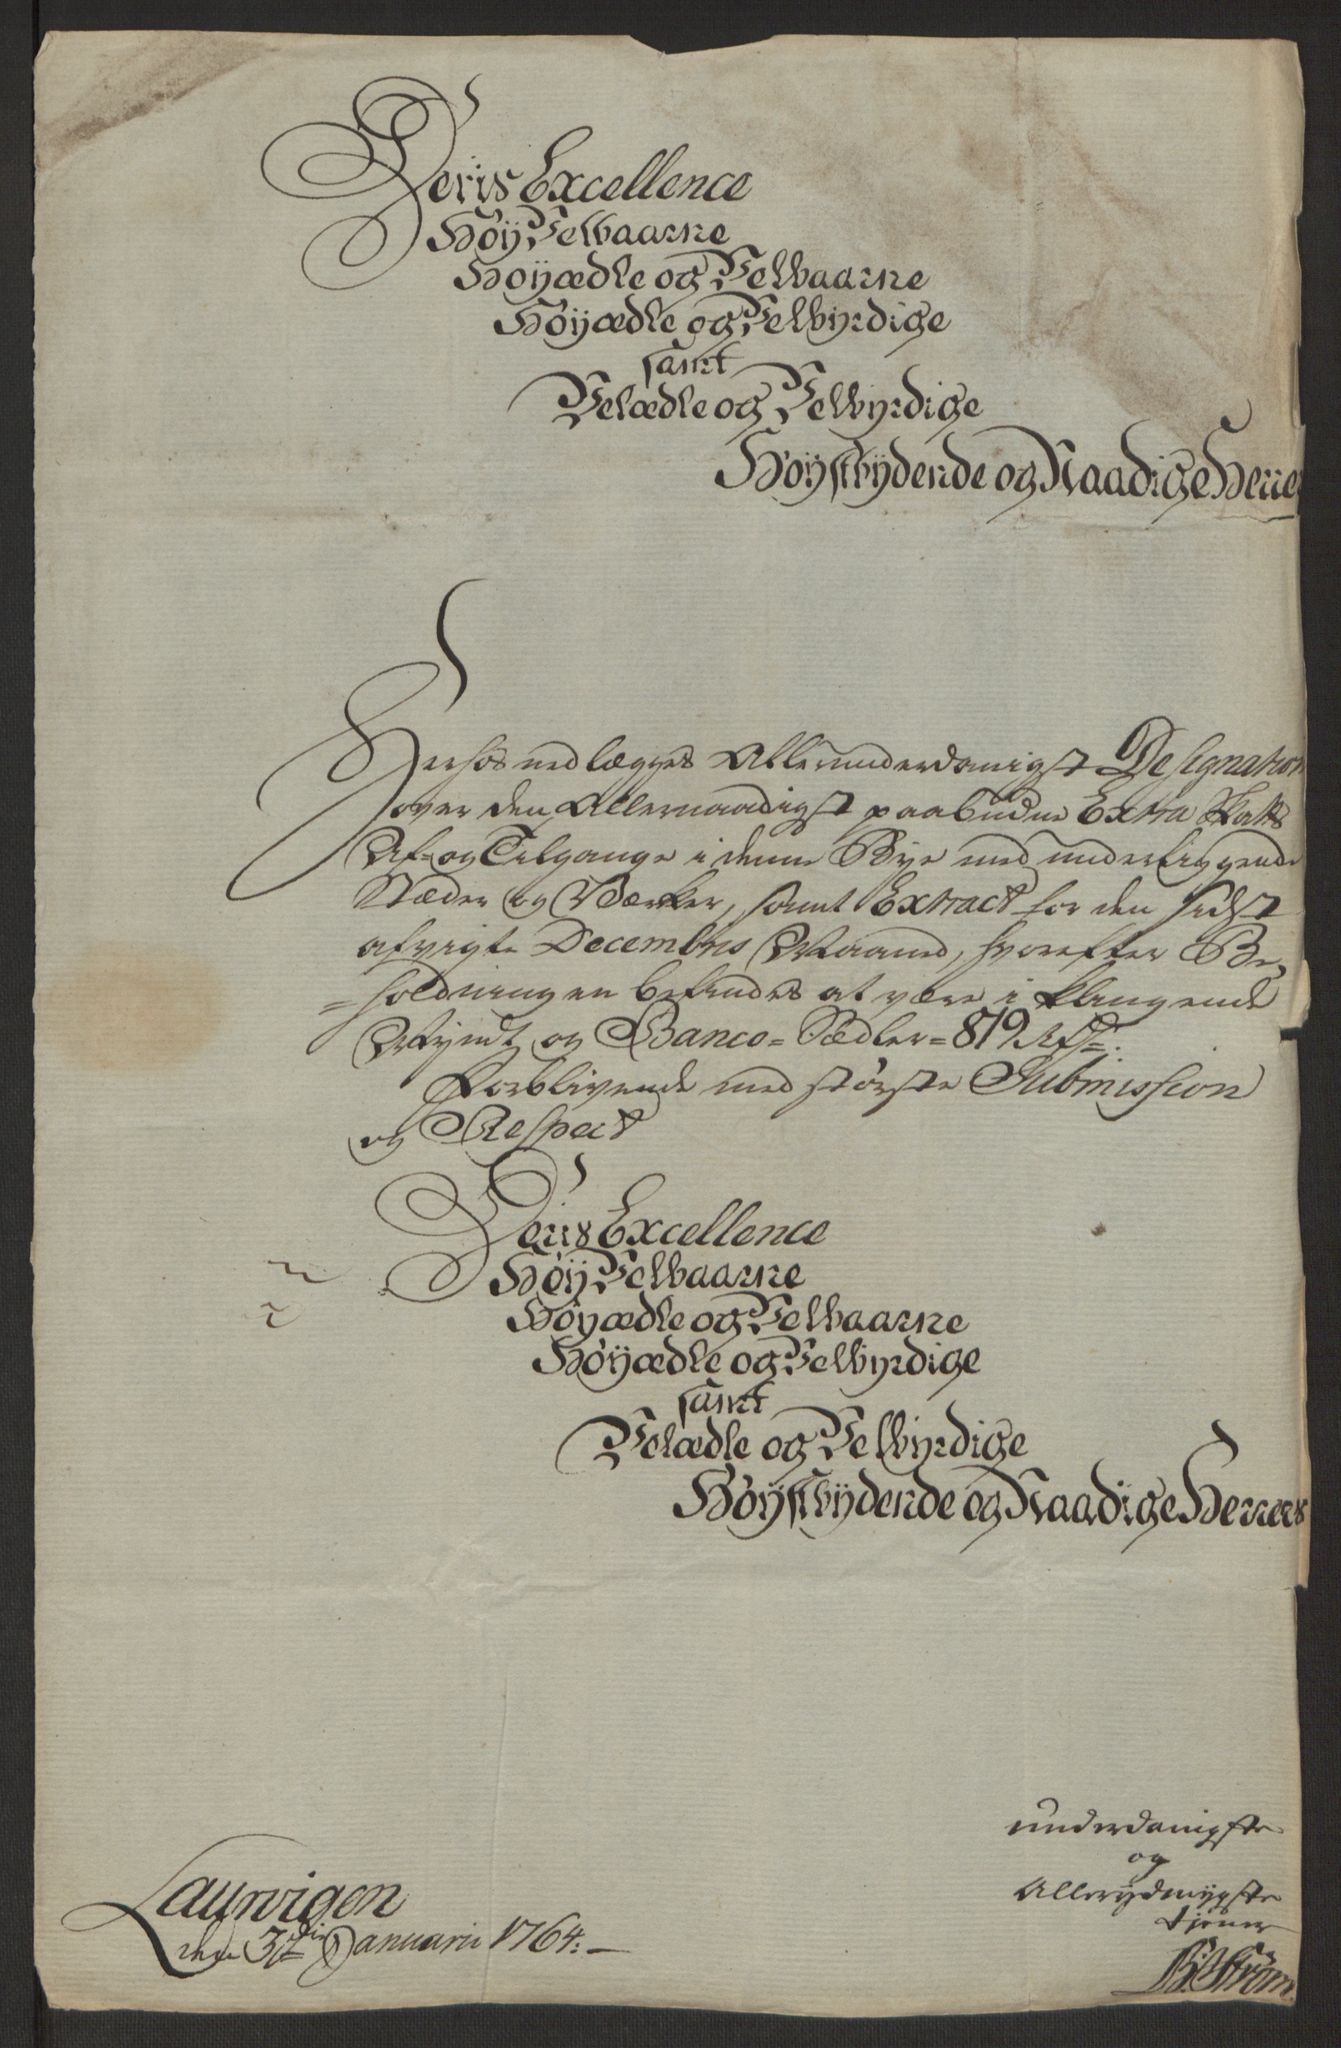 Deris Excellence
Høÿ Velbaarne
Høÿædle og Velbaarne
Høÿædle og Velbÿrdige
samt
Velædle og Velbÿrdige
Høÿstbÿdende og Naadige Herrer
Herhos nedlægges Allerunderdanigst Designation
over den Allernaadigst paabudne Extra Skatts
Af- og Tilgange i denne Bye med underliggende
Stæder og Værker, samt Extract for den sidst
afvigte Decembris Maaned, hvorefter Be-
=holdningen befindes at være i klingende
Myndt og Banco-Sedler = 879 Rd
Forblivende med største Submission
og Respect
Deris Excellence
Høÿ Velbaarne
Høÿædle og Velbaarne
Høÿædle og Velbÿrdige
samt
Velædle og Velbÿrdige
Høÿstbÿdende og Naadige Herrers
underdanigste
og
Allerydmygste
tjener
Laurvigen
den Januarii 1764.
Strøm